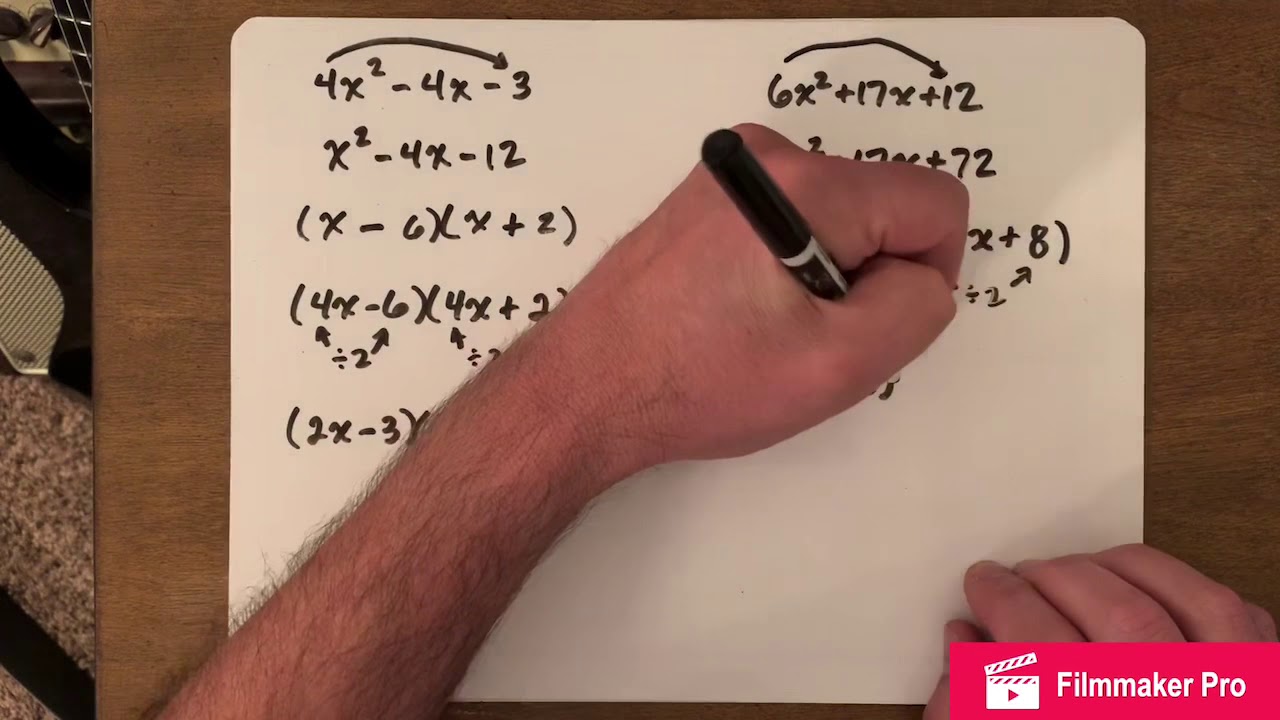 4x² - 4x - 3
x² - 4x - 12
(x - 6)(x + 2)
(4x - 6)(4x + 2
÷2 ÷2
(2x - 3)(
6x² + 17x + 12
² + 17x + 72
x + 8)
÷2
Filmmaker Pro